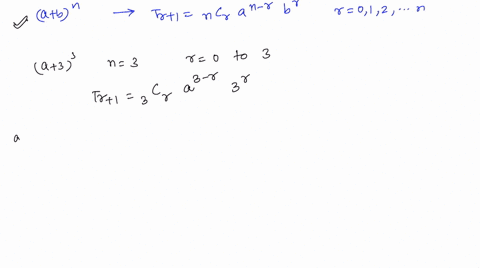 (a+b)ⁿ → Tr+1 = nCr aⁿ⁻ʳ bʳ r = 0,1,2, ... n
(a+3)³ n = 3 r = 0 to 3
Tr+1 = ₃Cr a³⁻ʳ 3ʳ
a